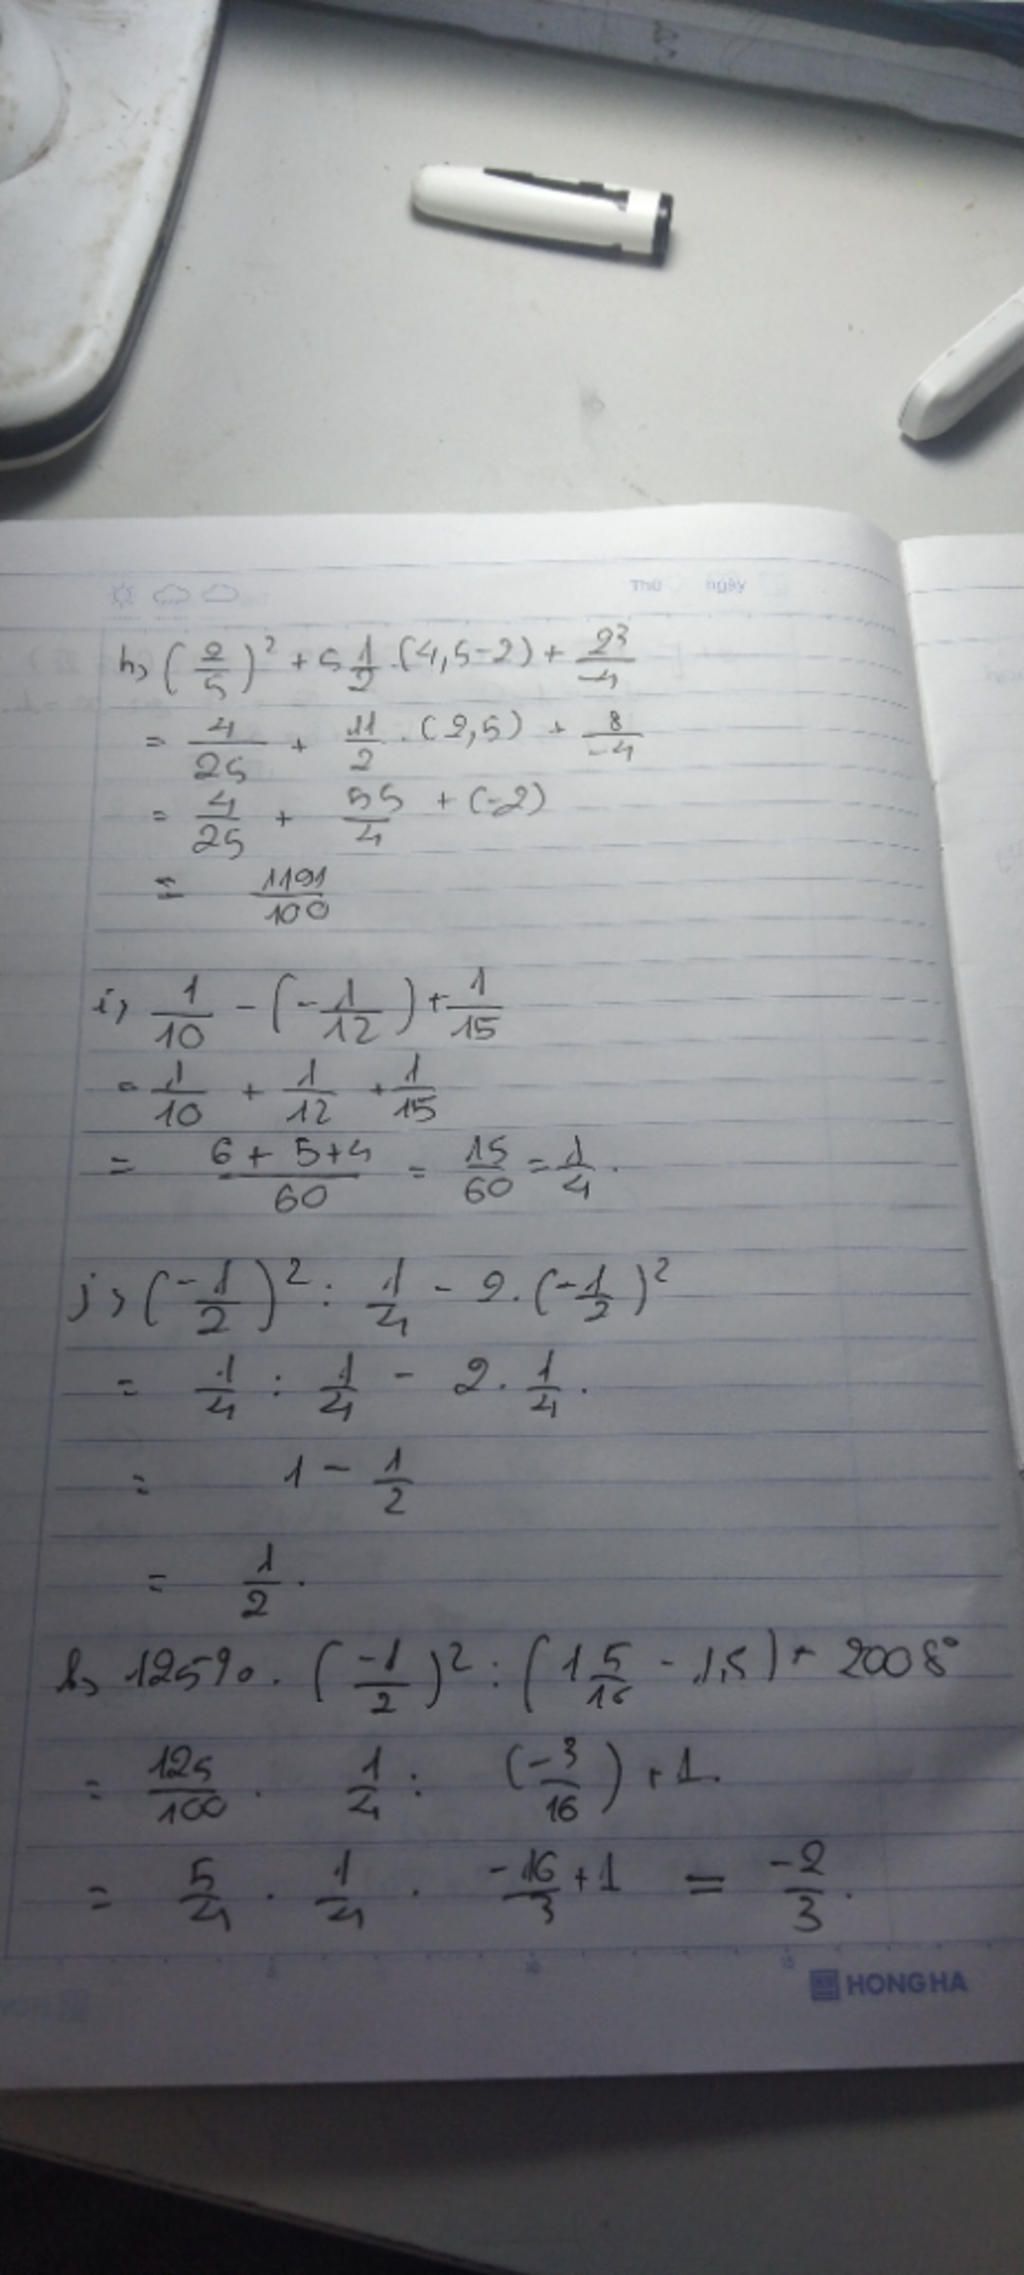 Thứ ngày
h, (2/5)² + 5 1/2 . (4,5-2) + 2³/-4
= 4/25 + 11/2 . (2,5) + 8/-4
= 4/25 + 55/4 + (-2)
= 1191/100
i, 1/10 - (-1/12) + 1/15
= 1/10 + 1/12 + 1/15
= 6+5+4/60 = 15/60 = 1/4 .
j, (-1/2)² : 1/4 - 2 . (-1/2)²
= 1/4 : 1/4 - 2 . 1/4 .
= 1 - 1/2
= 1/2 .
k, 125% . (-1/2)² : (1 5/16 - 1,5) + 2008⁰
= 125/100 . 1/4 : (-3/16) + 1.
= 5/4 . 1/4 . -16/3 + 1 = -2/3 .
5 10 15
HONG HA